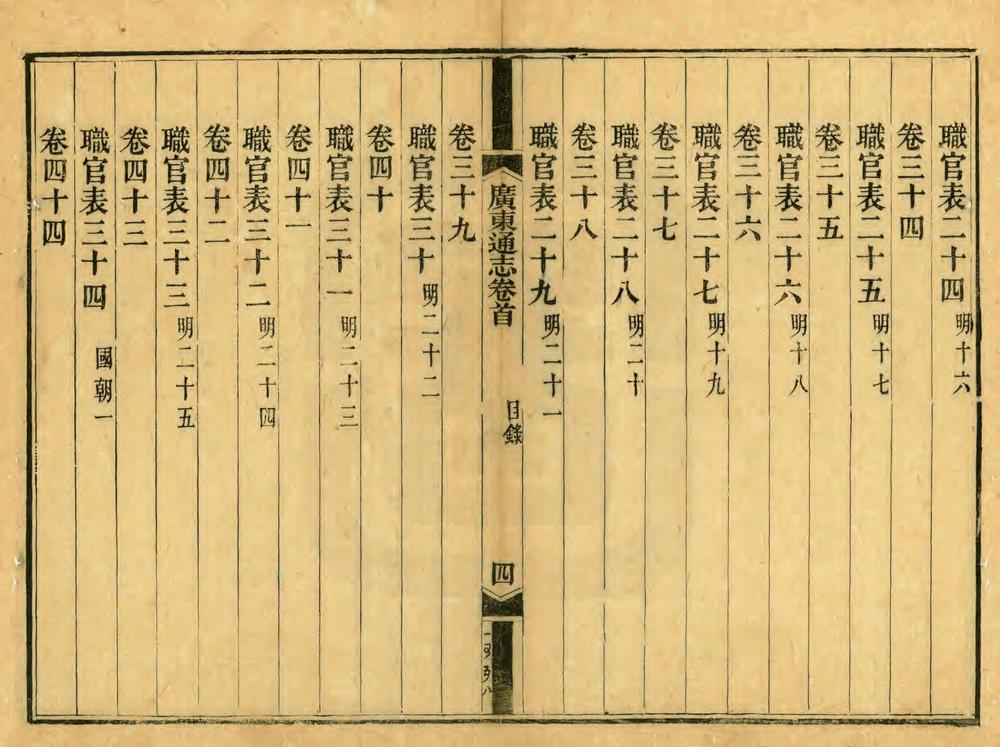 職官表二十四 明十六
卷三十四
職官表二十五 明十七
卷三十五
職官表二十六 明十八
卷三十六
職官表二十七 明十九
卷三十七
職官表二十八 明二十
卷三十八
職官表二十九 明二十一
廣東通志卷首 目錄 四
卷三十九
職官表三十 明二十二
卷四十
職官表三十一 明二十三
卷四十一
職官表三十二 明二十四
卷四十二
職官表三十三 明二十五
卷四十三
職官表三十四 國朝一
卷四十四